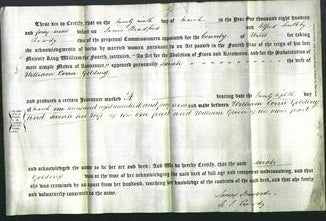 These are to Certify, that on the twenty ninth day of March in the Year One thousand eight hundred
and forty before James Alfred
two of the perpetual Commissioners appointed for the County of Wilts for taking
the acknowledgments of deeds by married women pursuant to an Act passed in the Fourth Year of the reign of his late
Majesty King William the Fourth, intituled, "An Act for the Abolition of Fines and Recoveries, and for the Substitution of
more simple Modes of Assurance," appeared personally Sarah
William Golding
and produced a certain Indenture marked A bearing date the twenty eighth day
of March one thousand eight hundred and and made between William Golding
and Sarah his wife of the one part and William of the other part
and acknowledged the same to be her act and deed: And We do hereby Certify, that the said Sarah
Golding was at the time of her acknowledging the said deed of full age and competent understanding, and that
she was examined by us apart from her husband, touching her knowledge of the contents of the said deed, and that she freely
and voluntarily consented to the same.